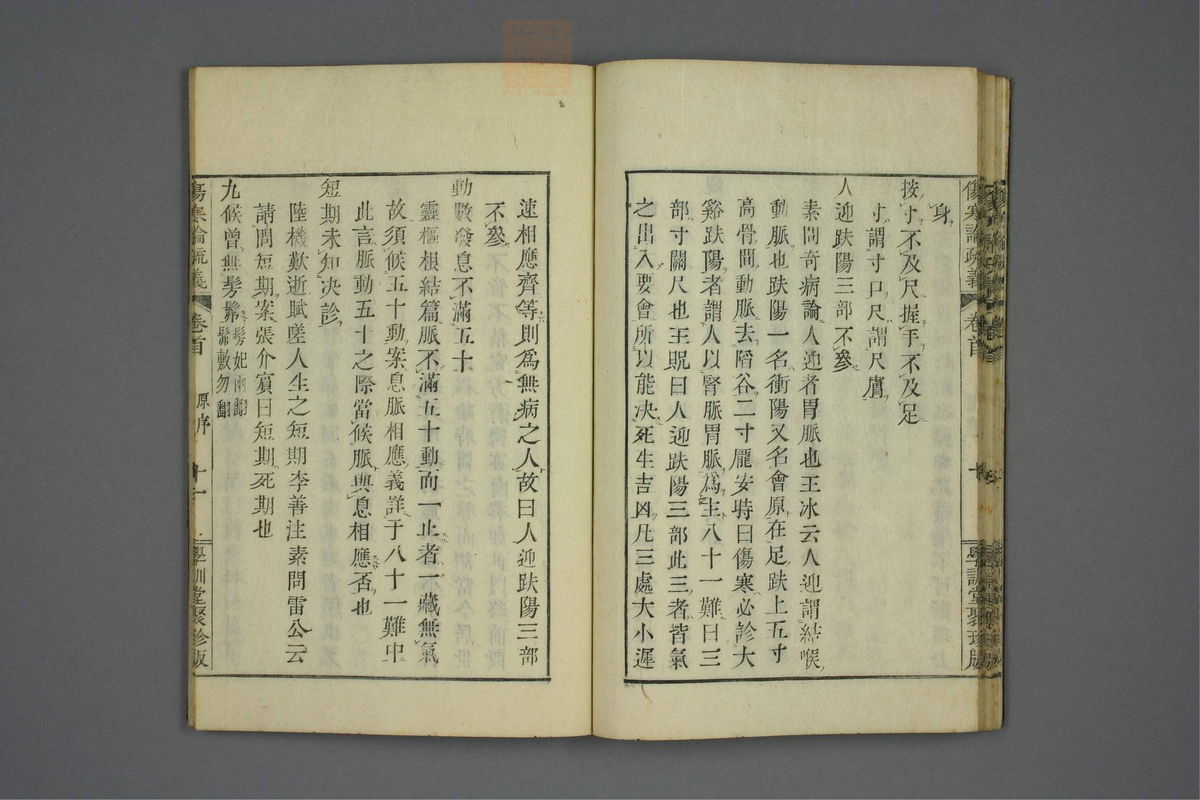 傷寒論疏義 卷首 學訓堂聚珍版
身
按寸不及尺握手不及足
寸謂寸口尺謂尺膚
人迎趺陽三部不參
素問奇病論人迎者胃脈也王冰云人迎謂結喉
動脈也趺陽一名衝陽又名會原在足趺上五寸
高骨間動脈去陷谷二寸龐安時曰傷寒必診大
谿趺陽者謂人以腎脈胃脈爲主八十一難曰三
部寸關尺也王昵曰人迎趺陽三部此三者皆氣
之出入要會所以能决死生吉凶凡三處大小遲
速相應齊等則爲無病之人故曰人迎趺陽三部
不參
動數發息不滿五十
靈樞根結篇脈不滿五十動而一止者一藏無氣
故須候五十動案息脈相應義詳于八十一難中
此言脈動五十之際當候脈與息相應否也
短期未知决診
陸機歎逝賦嗟人生之短期李善注素問雷公云
請問短期案張介賓曰短期死期也
九候曾無髣髴髣妃兩翻髴敷勿翻
傷寒論疏義 卷首 原序 十一 學訓堂聚珍版